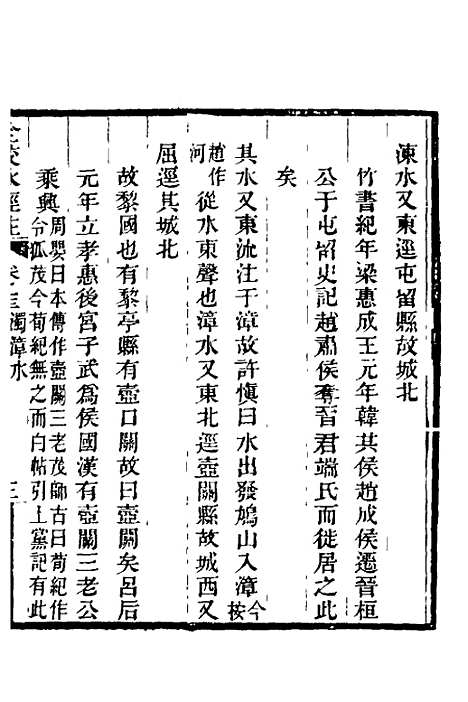 涑水又東逕屯留縣故城北
竹書紀年梁惠成王元年韓共侯趙成侯遷晉桓
公于屯留史記趙肅侯奪晉君端氏而徙居之此
矣
其水又東流注于漳故許愼曰水出發鳩山入漳今按
趙作河從水東聲也漳水又東北逕壺關縣故城西又
屈逕其城北
故黎國也有黎亭縣有壺口關故曰壺關矣呂后
元年立孝惠後宮子武爲侯國漢有壺關三老公
乘興周嬰曰本傳作壺關三老茂師古曰荀紀作令狐茂今荀紀無之而白帖引上黨記有此
全校水經注 卷十 濁漳水 三